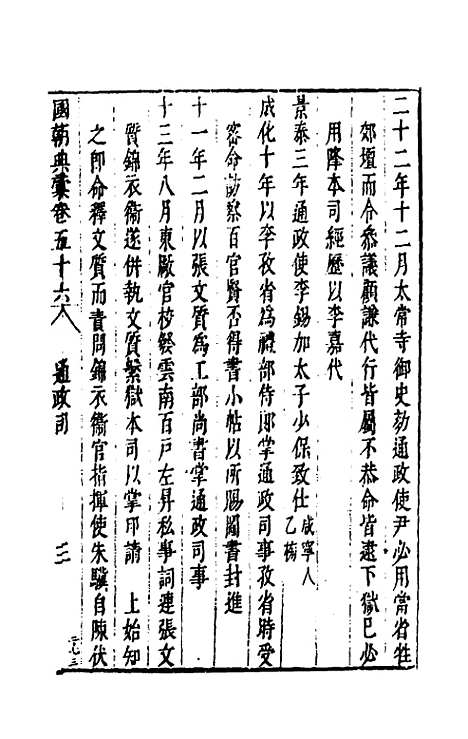 二十二年十二月太常寺御史劾通政使尹必用當省牲
郊壇而令叅議顧謙代行皆屬不恭命皆逮下獄已必
用降本司經歷以李嘉代
景泰三年通政使李錫加太子少保致仕咸寧人乙榜
成化十年以李孜省為禮部侍郎掌通政司事孜省時受
密命訪察百官賢否得書小帖以所賜圖書封進
十一年二月以張文質為工部尚書掌通政司事
十三年八月東厰官校發雲南百戶左昇私事詞連張文
質錦衣衛遂併執文質繫獄本司以掌印請 上始知
之即命釋文質而責問錦衣衛官指揮使朱驥自陳伏
國朝典彙卷五十六 通政司 三